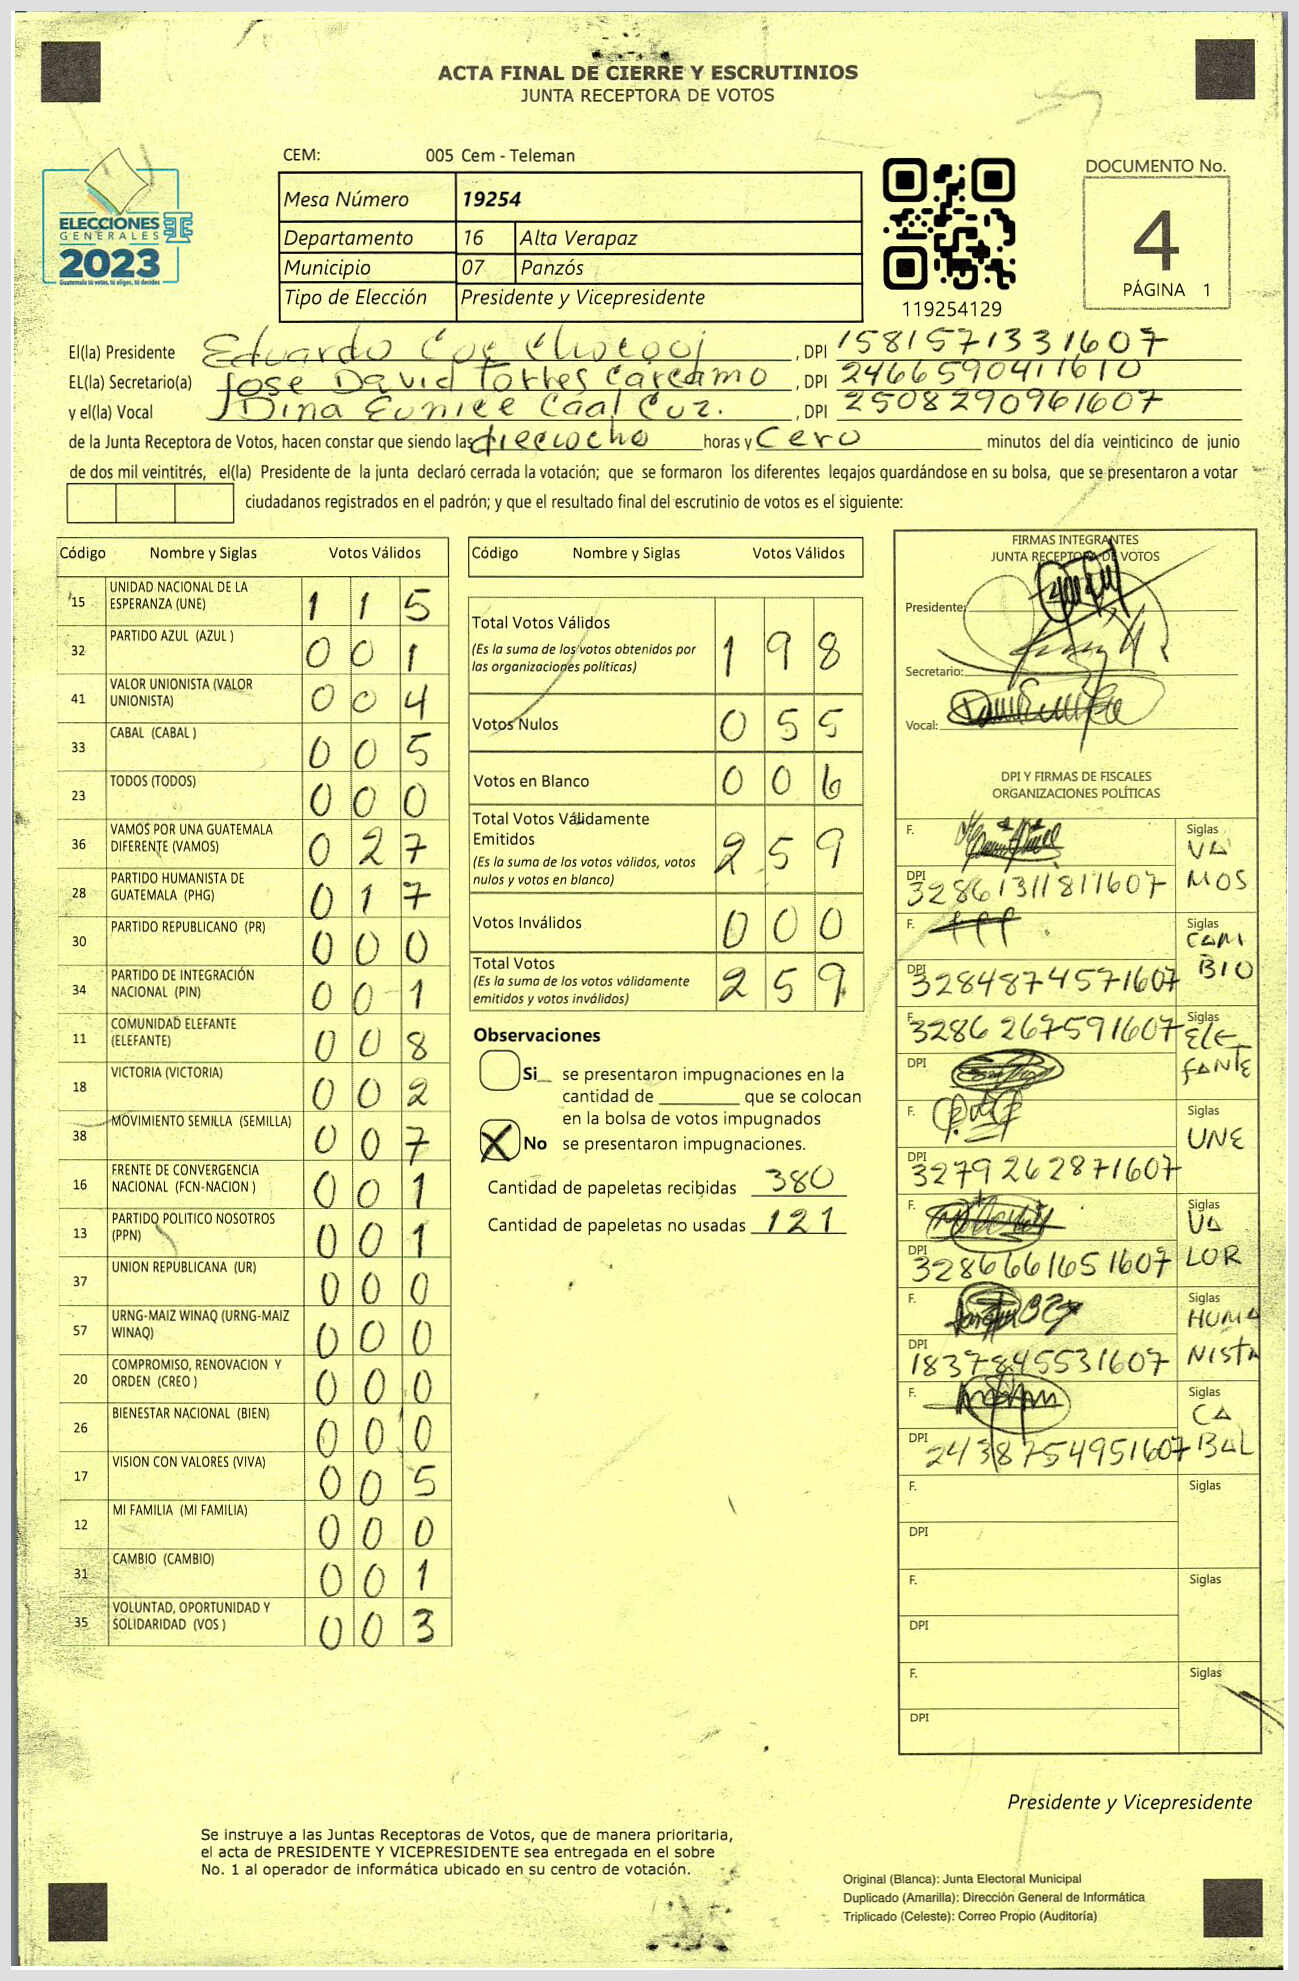 ACTA FINAL DE CIERRE Y ESCRUTINIOS
JUNTA RECEPTORA DE VOTOS
CEM: 005 Cem - Teleman
Mesa Número 19254
Departamento 16 Alta Verapaz
Municipio 07 Panzós
Tipo de Elección Presidente y Vicepresidente
ELECCIONES
GENERALES
2023
Guatemala tú votas, tú eliges, tú decides
119254129
DOCUMENTO No.
4
PÁGINA 1
El(la) Presidente Eduardo Coc Chocooj, DPI 1581571331607
EL(la) Secretario(a) Jose David Torres Carcamo, DPI 2466590411610
y el(la) Vocal Dina Eunice Caal Cuz., DPI 2508290961607
de la Junta Receptora de Votos, hacen constar que siendo las dieciocho horas y Cero minutos del día veinticinco de junio
de dos mil veintitrés, el(la) Presidente de la junta declaró cerrada la votación; que se formaron los diferentes legajos guardándose en su bolsa, que se presentaron a votar
ciudadanos registrados en el padrón; y que el resultado final del escrutinio de votos es el siguiente:
Código Nombre y Siglas Votos Válidos
15 UNIDAD NACIONAL DE LA ESPERANZA (UNE) 1 1 5
32 PARTIDO AZUL (AZUL ) 0 0 1
41 VALOR UNIONISTA (VALOR UNIONISTA) 0 0 4
33 CABAL (CABAL ) 0 0 5
23 TODOS (TODOS) 0 0 0
36 VAMOS POR UNA GUATEMALA DIFERENTE (VAMOS) 0 2 7
28 PARTIDO HUMANISTA DE GUATEMALA (PHG) 0 1 7
30 PARTIDO REPUBLICANO (PR) 0 0 0
34 PARTIDO DE INTEGRACIÓN NACIONAL (PIN) 0 0 1
11 COMUNIDAD ELEFANTE (ELEFANTE) 0 0 8
18 VICTORIA (VICTORIA) 0 0 2
38 MOVIMIENTO SEMILLA (SEMILLA) 0 0 7
16 FRENTE DE CONVERGENCIA NACIONAL (FCN-NACION ) 0 0 1
13 PARTIDO POLITICO NOSOTROS (PPN) 0 0 1
37 UNION REPUBLICANA (UR) 0 0 0
57 URNG-MAIZ WINAQ (URNG-MAIZ WINAQ) 0 0 0
20 COMPROMISO, RENOVACION Y ORDEN (CREO ) 0 0 0
26 BIENESTAR NACIONAL (BIEN) 0 0 0
17 VISION CON VALORES (VIVA) 0 0 5
12 MI FAMILIA (MI FAMILIA) 0 0 0
31 CAMBIO (CAMBIO) 0 0 1
35 VOLUNTAD, OPORTUNIDAD Y SOLIDARIDAD (VOS ) 0 0 3
Código Nombre y Siglas Votos Válidos
Total Votos Válidos 1 9 8
(Es la suma de los votos obtenidos por
las organizaciones políticas)
Votos Nulos 0 5 5
Votos en Blanco 0 0 6
Total Votos Válidamente
Emitidos 2 5 9
(Es la suma de los votos válidos, votos
nulos y votos en blanco)
Votos Inválidos 0 0 0
Total Votos 2 5 9
(Es la suma de los votos válidamente
emitidos y votos inválidos)
Observaciones
Si__ se presentaron impugnaciones en la
cantidad de ________ que se colocan
en la bolsa de votos impugnados
X No se presentaron impugnaciones.
Cantidad de papeletas recibidas 380
Cantidad de papeletas no usadas 121
FIRMAS INTEGRANTES
JUNTA RECEPTORA DE VOTOS
Presidente:
Secretario:
Vocal:
DPI Y FIRMAS DE FISCALES
ORGANIZACIONES POLÍTICAS
F. Siglas VA
DPI 3286131181607 MOS
F. Siglas CAM
DPI 3284874571607 BIO
F. 3286267591607 Siglas ELE
DPI FANTE
F. Siglas
UNE
DPI 3279262871607
F. Siglas VA
DPI 3286661651607 LOR
F. Siglas HUMA
DPI 1837845531607 NISTA
F. Siglas CA
DPI 2438754951607 BAL
F. Siglas
DPI
F. Siglas
DPI
F. Siglas
DPI
Presidente y Vicepresidente
Se instruye a las Juntas Receptoras de Votos, que de manera prioritaria,
el acta de PRESIDENTE Y VICEPRESIDENTE sea entregada en el sobre
No. 1 al operador de informática ubicado en su centro de votación.
Original (Blanca): Junta Electoral Municipal
Duplicado (Amarilla): Dirección General de Informática
Triplicado (Celeste): Correo Propio (Auditoría)